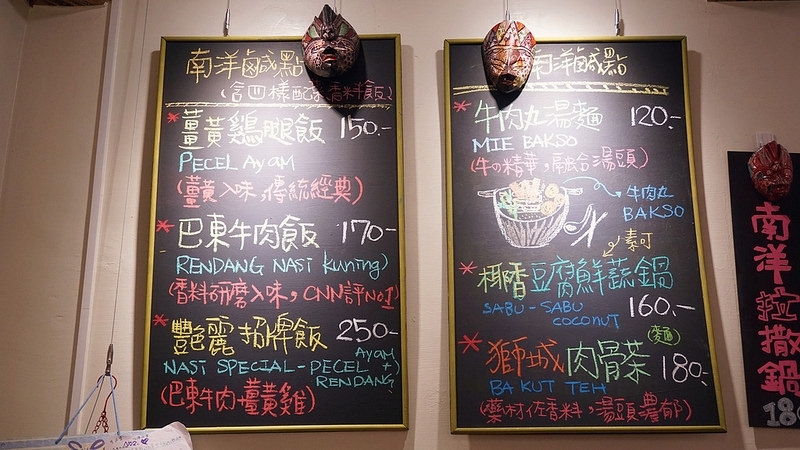 南洋鹹點
(含四樣配菜香料飯)
*薑黃鷄腿飯 150.-
PECEL Ayam
(薑黃入味,傳統經典)
*巴東牛肉飯 170-
RENDANG NASI Kuning)
(香料研磨入味,CNN評No1)
*艷麗招牌飯 250-
NASI SPECIAL-PECEL Ayam +)
RENDANG
(巴東牛肉+薑黃雞)
南洋鹹點
*牛肉丸湯麵 120.-
MIE BAKSO
(牛の精華,融合湯頭)
牛肉丸
BAKSO
素可
*椰香豆腐鮮蔬鍋
SABU-SABU COCONUT 160.-
(麵)
*獅城肉骨茶 180.-
BA KUT TEH
(藥材佐香料,湯頭濃郁)
南洋拉撒鍋